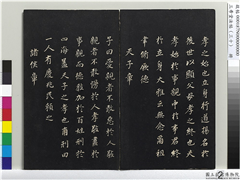 孝之始也立身行道揚名於
後世以顯父母孝之終也夫
孝始於事親中於事君終
於立身大雅云無念爾祖
聿脩厥德
天子章
子曰愛親者不敢惡於人敬
親者不敢慢於人愛敬盡於
事親而德教加於百姓刑于
四海蓋天子之孝也甫刑云
一人有慶兆民賴之
諸侯章